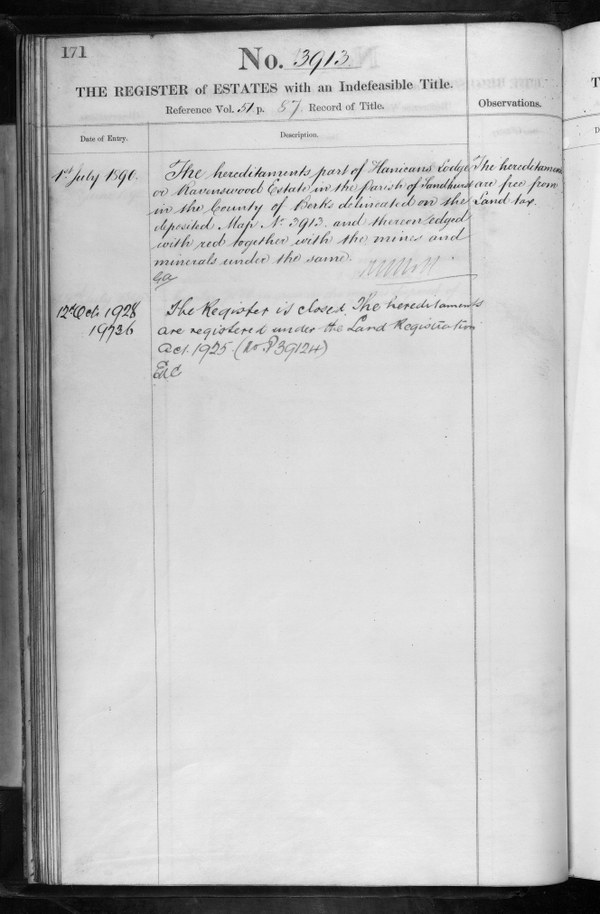 171
No. 3913
THE REGISTER of ESTATES with an Indefeasible Title.
Reference Vol. 51 p. 87. Record of Title.
Observations.
Date of Entry.
Description.
1st July 1890.
The hereditaments part of Hanicans Lodge
or Ravenswood Estate in the Parish of Sandhurst
in the County of Berks delineated on the
deposited Map No 3913. and thereon edged
with red together with the mines and
minerals under the same.
The hereditaments
are free from
Land tax.
12th Oct. 1928
19736
The Register is closed. The hereditaments
are registered under the Land Registration
Act. 1925 (No. P39124)